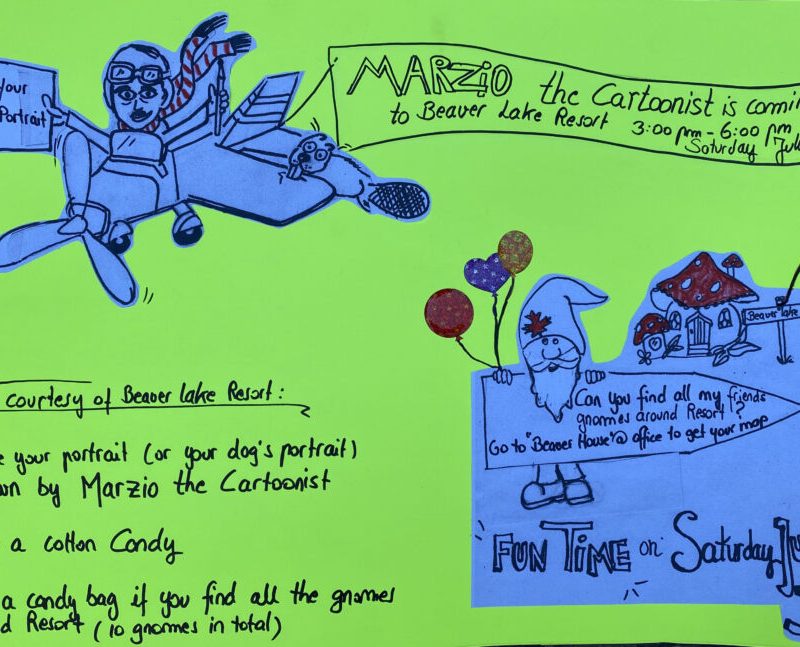 your
Portrait
MARZIO the Cartoonist is comin
to Beaver Lake Resort 3:00 pm - 6:00 pm
Saturday Jul
Beaver Lake
Can you find all my friends
gnomes around Resort?
Go to "Beaver House"@ office to get your map
FUN TIME on Saturday Ju
courtesy of Beaver Lake Resort:
e your portrait (or your dog's portrait)
wn by Marzio the Cartoonist
a cotton Candy
a candy bag if you find all the gnomes
d Resort (10 gnomes in total)